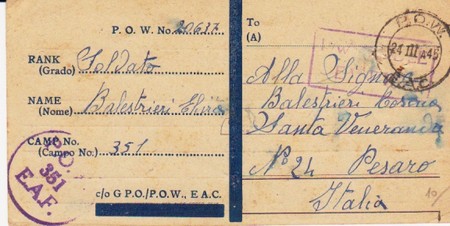 P. O. W. No. 20637
RANK
(Grado)
Soldato
NAME
(Nome)
Balestrieri
CAMP No.
(Campo No.)
351
c/o G P.O./P.O.W., E A.C.
351
E.A.F.
To
(A)
P.O.W.
24 III 45
Alla
Balestrieri
Santa Veneranda
N° 24 Pesaro
Italia
10/